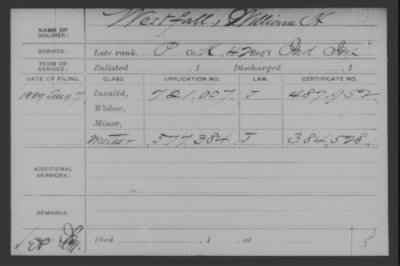 NAME OF SOLDIER: Westfall, William H.
SERVICE: Late rank, P Co. K, 42 Reg't Ind Inf.
TERM OF SERVICE: Enlisted , 1 Discharged , 1
DATE OF FILING. CLASS. APPLICATION NO. LAW. CERTIFICATE NO.
1889 Aug 7 Invalid, 721,007. J 487,952.
Widow,
Minor,
577,384. J 384,528.
ADDITIONAL SERVICES:
REMARKS:
Died , 1 , at